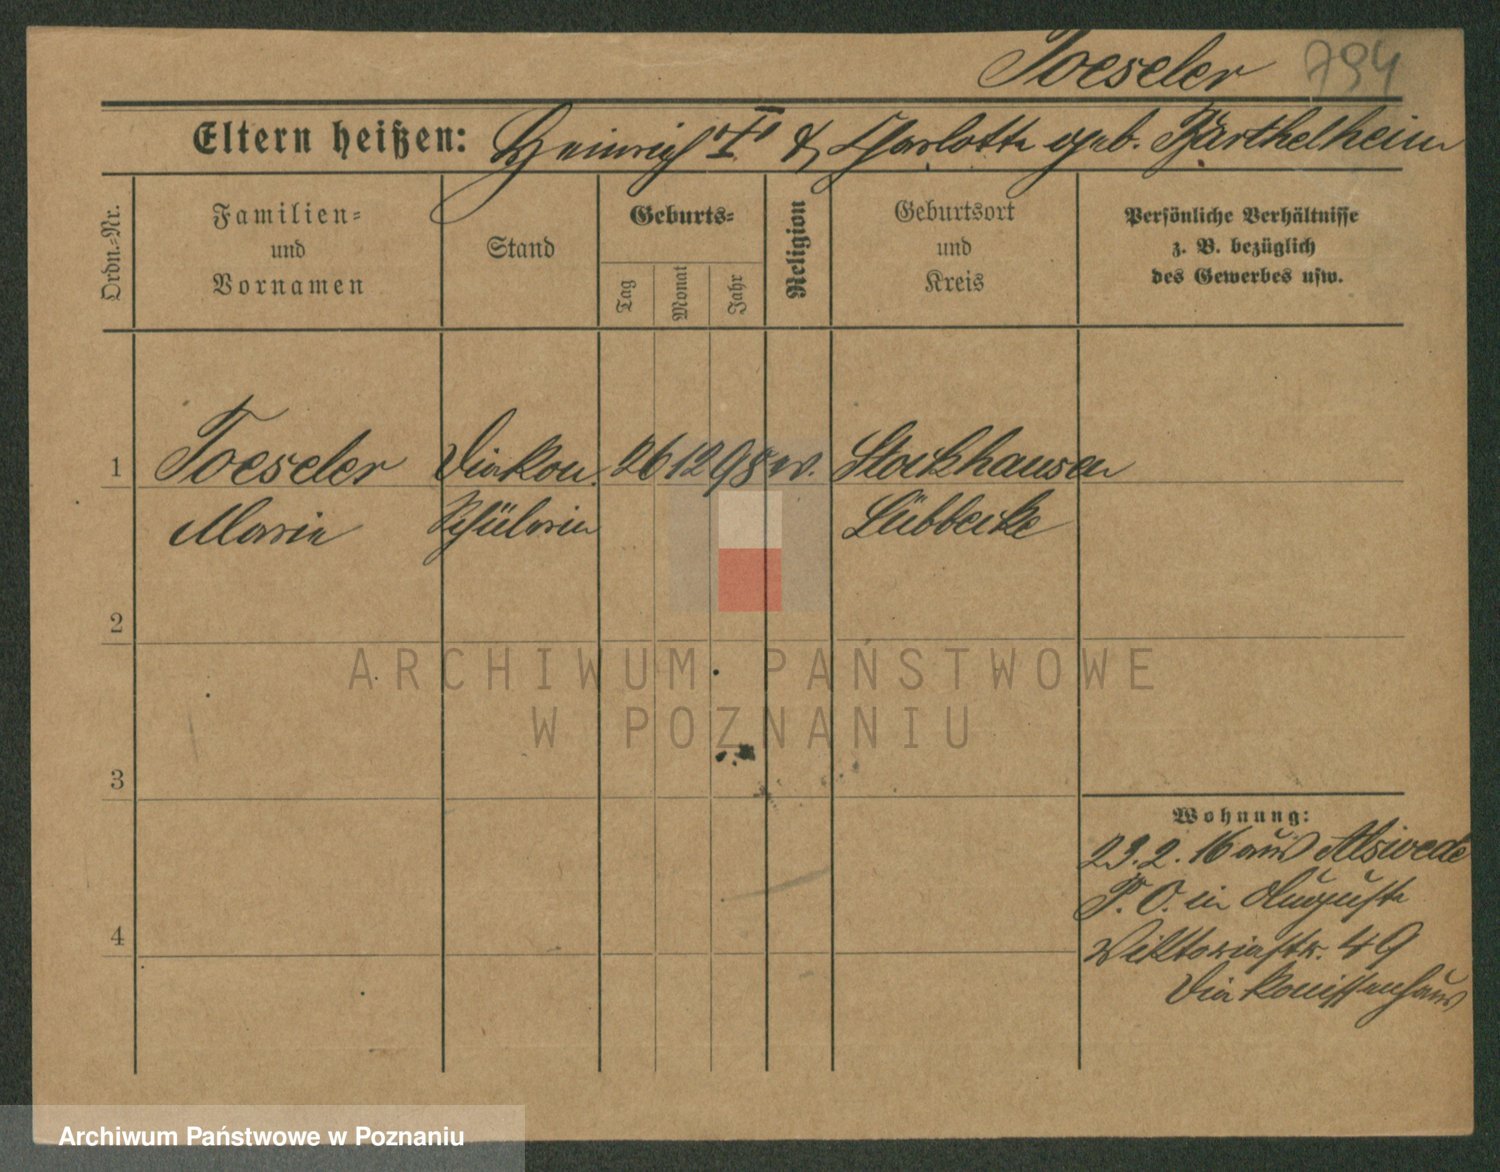 Toeseler 794
Eltern heißen: Heinrich T. & Charlotte geb. Barthelheim
Ordn.-Nr.
Familien-
und
Vornamen
Stand
Geburts-
Tag
Monat
Jahr
Religion
Geburtsort
und
Kreis
Persönliche Verhältnisse
z. B. bezüglich
des Gewerbes usw.
1 Toeseler Diakon. 26 12 98 ev. Stockhausen
Marie Schülerin Lübbecke
2
3
4
Wohnung:
23.2.16 aus Alswede
P. O. in Auguste
Viktoriastr. 49
Diakonissenhaus
ARCHIWUM PAŃSTWOWE
W POZNANIU
Archiwum Państwowe w Poznaniu